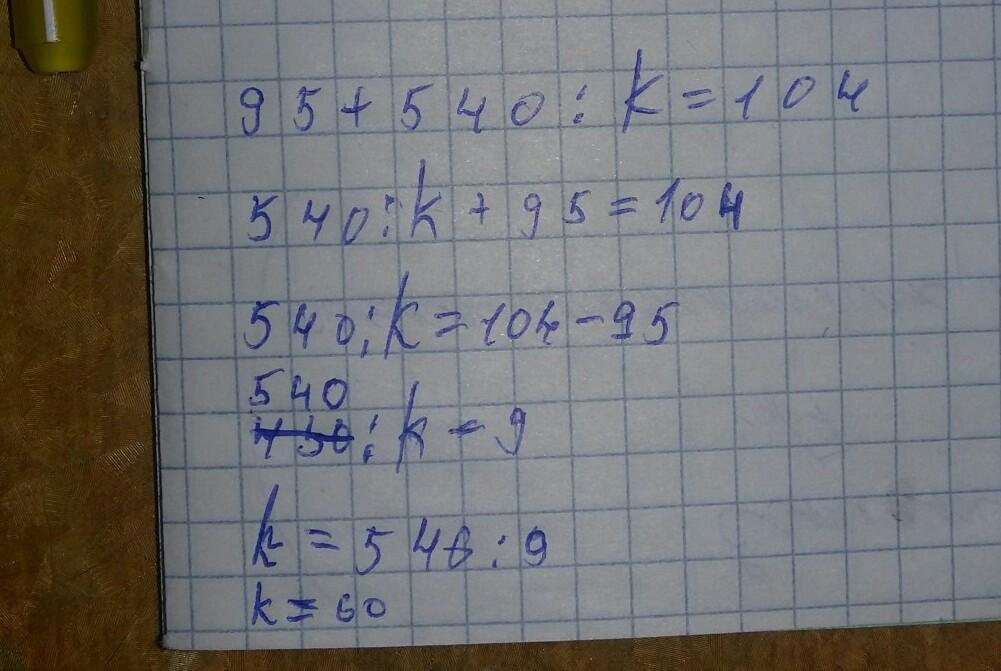 95+540:k=104
540:k+95=104
540:k=104-95
540
450:k=9
k=540:9
k=60